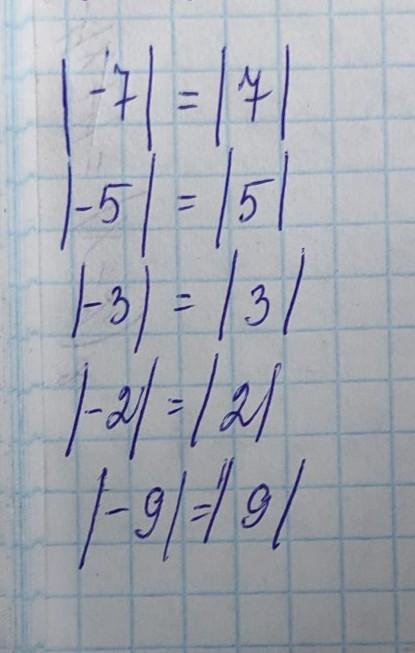 |-7| = |7|
|-5| = |5|
|-3| = |3|
|-2| = |2|
|-9| = |9|